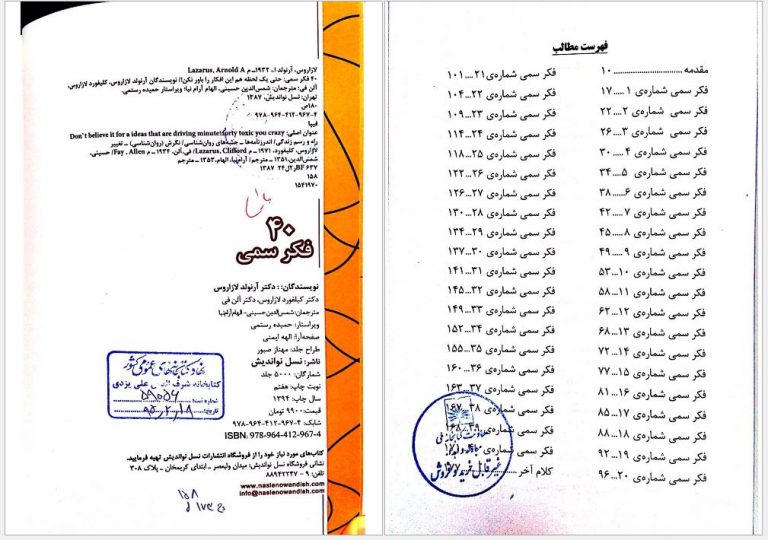 لازاروس، آرنولد ا، ۱۹۳۲ـ م Lazarus, Arnold A
۴۰ فکر سمی: حتی یک لحظه هم این افکار را باور نکن!/ نویسندگان آرنولد لازاروس، کلیفورد لازاروس،
آلن فی؛ مترجمان: شمس‌الدین حسینی، الهام آرام نیا؛ ویراستار حمیده رستمی.
تهران: نسل نواندیش، ۱۳۸۷
۱۸۰ص
۹۷۸-۹۶۴-۴۱۲-۹۶۷-۴
فیپا
عنوان اصلی: Don't believe it for a ideas that are driving minute:forty toxic you crazy
راه و رسم زندگی/ اندرزنامه‌ها ــ جنبه‌های روان‌شناسی/ نگرش (روان‌شناسی) ــ تغییر
لازاروس، کلیفورد، ۱۹۷۱ ـ م Lazarus, Clifford/ فی، آلن، ۱۹۳۴ ـ م Fay, Allen/ حسینی،
شمس‌الدین، ۱۳۵۱ـ مترجم/ آرام‌نیا، الهام، ۱۳۵۳ـ مترجم
۱۳۸۷ ۲۴ل۲ر/BF ۶۳۷
۱۵۸
۱۵۴۱۹۷۰
۴۰
فکر سمی
نویسندگان: دکتر آرنولد لازاروس
دکتر کلیفورد لازاروس، دکتر آلن فی
مترجمان: شمس‌الدین حسینی- الهام آرام‌نیا
ویراستار: حمیده رستمی
صفحه‌آرا: الهه ایمنی
طراح جلد: مهناز صبور
ناشر: نسل نواندیش
شمارگان: ۵۰۰۰ جلد
نوبت چاپ: هفتم
سال چاپ: ۱۳۹۴
قیمت: ۹۹۰۰ تومان
شابک: ۴-۹۶۷-۴۱۲-۹۶۴-۹۷۸
ISBN: 978-964-412-967-4
کتاب‌های مورد نیاز خود را از فروشگاه انتشارات نسل نواندیش تهیه فرمایید.
نشانی فروشگاه نسل نواندیش: میدان ولیعصر - ابتدای کریمخان - پلاک ۳۰۸
تلفن: ۹ - ۸۸۹۴۲۲۴۷
www.naslenowandish.com
info@naslenowandish.com
نهاد کتابخانه‌های عمومی کشور
کتابخانه شرف الدین علی یزدی
شماره ثبت: ۵۸۰۵۶
تاریخ: ۹۵,۲,۱۸
۱۵۸
فهرست مطالب
مقدمه ................ ۱۰
فکر سمی شماره‌ی ۱ .... ۱۷
فکر سمی شماره‌ی ۲ .... ۲۲
فکر سمی شماره‌ی ۳ .... ۲۶
فکر سمی شماره‌ی ۴ .... ۳۰
فکر سمی شماره‌ی ۵ .... ۳۴
فکر سمی شماره‌ی ۶ .... ۳۸
فکر سمی شماره‌ی ۷ .... ۴۲
فکر سمی شماره‌ی ۸ .... ۴۵
فکر سمی شماره‌ی ۹ .... ۴۹
فکر سمی شماره‌ی ۱۰... ۵۳
فکر سمی شماره‌ی ۱۱... ۵۸
فکر سمی شماره‌ی ۱۲... ۶۲
فکر سمی شماره‌ی ۱۳... ۶۸
فکر سمی شماره‌ی ۱۴... ۷۲
فکر سمی شماره‌ی ۱۵... ۷۷
فکر سمی شماره‌ی ۱۶... ۸۱
فکر سمی شماره‌ی ۱۷... ۸۵
فکر سمی شماره‌ی ۱۸... ۸۸
فکر سمی شماره‌ی ۱۹... ۹۲
فکر سمی شماره‌ی ۲۰... ۹۶
فکر سمی شماره‌ی ۲۱... ۱۰۱
فکر سمی شماره‌ی ۲۲... ۱۰۴
فکر سمی شماره‌ی ۲۳... ۱۰۹
فکر سمی شماره‌ی ۲۴... ۱۱۴
فکر سمی شماره‌ی ۲۵... ۱۱۸
فکر سمی شماره‌ی ۲۶... ۱۲۲
فکر سمی شماره‌ی ۲۷... ۱۲۶
فکر سمی شماره‌ی ۲۸... ۱۳۰
فکر سمی شماره‌ی ۲۹... ۱۳۴
فکر سمی شماره‌ی ۳۰... ۱۳۷
فکر سمی شماره‌ی ۳۱... ۱۴۱
فکر سمی شماره‌ی ۳۲... ۱۴۵
فکر سمی شماره‌ی ۳۳... ۱۴۹
فکر سمی شماره‌ی ۳۴... ۱۵۲
فکر سمی شماره‌ی ۳۵... ۱۵۵
فکر سمی شماره‌ی ۳۶... ۱۶۰
فکر سمی شماره‌ی ۳۷... ۱۶۳
فکر سمی شماره‌ی ۳۸... ۱۶۷
فکر سمی شماره‌ی ۳۹... ۱۶۸
فکر سمی شماره‌ی ۴۰...
کلام آخر
غیر قابل خرید و فروش